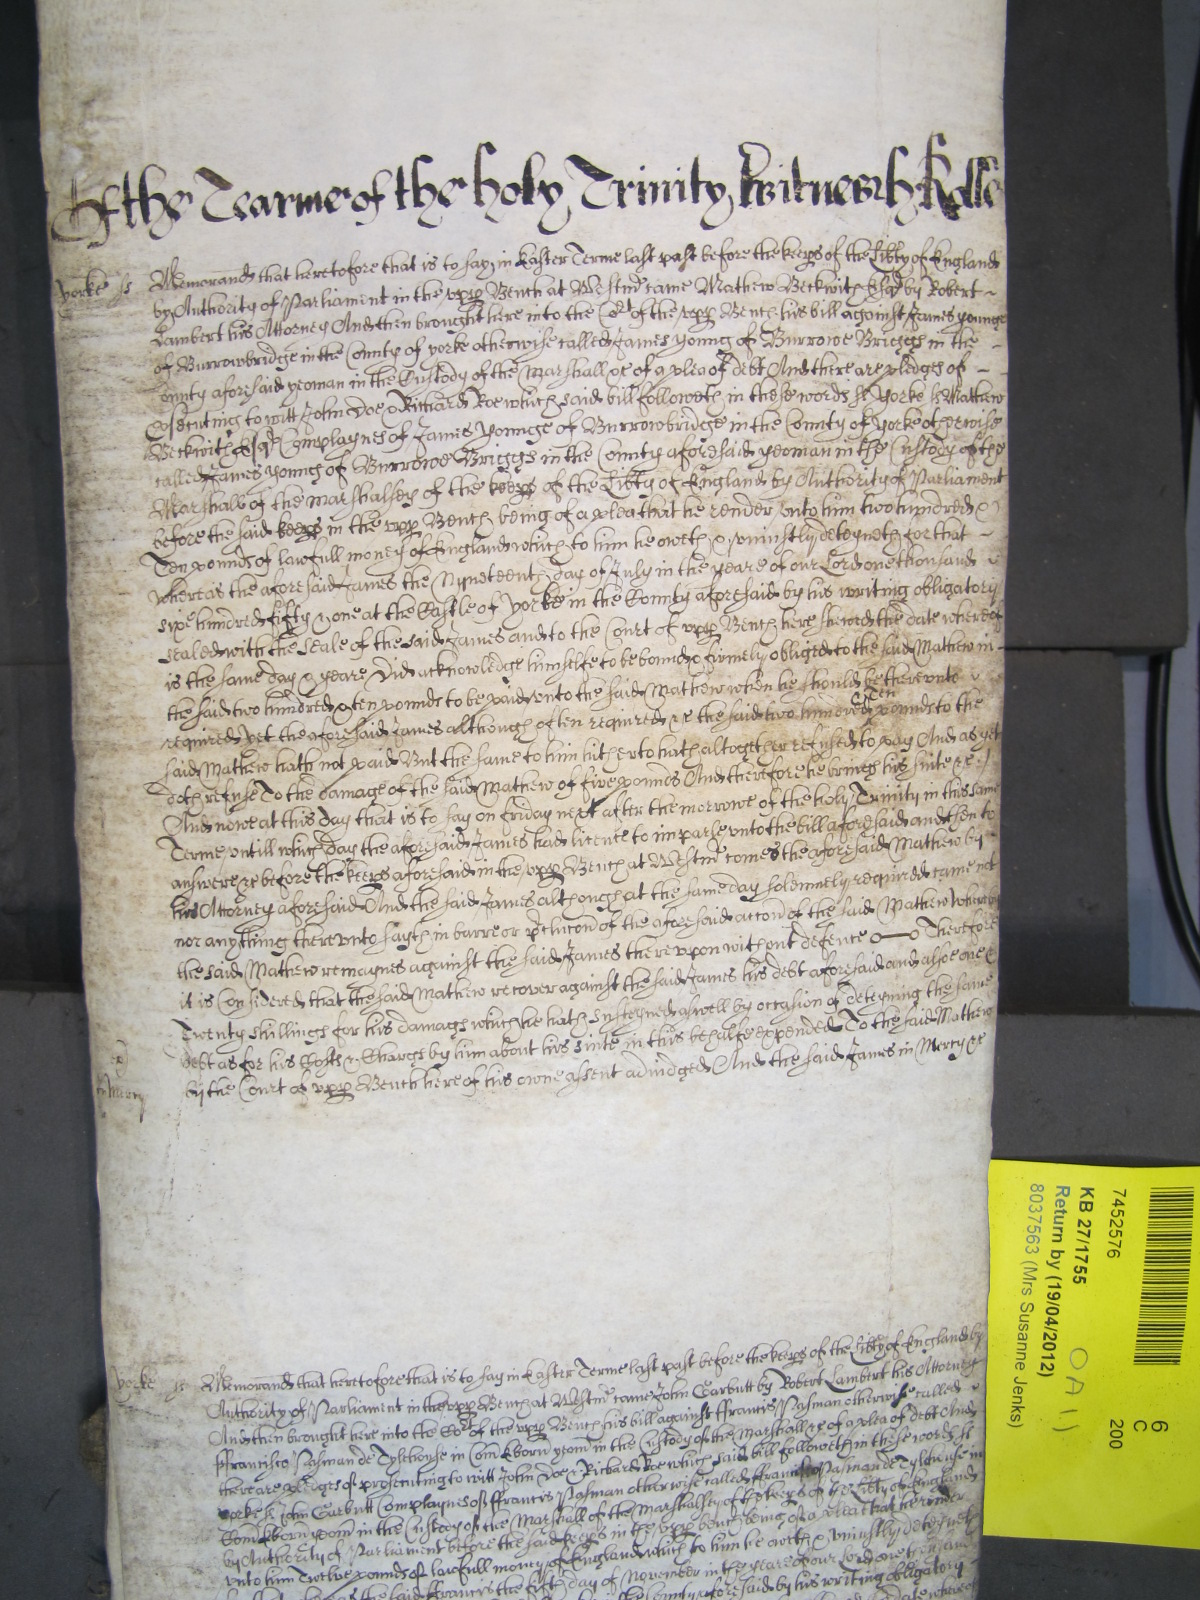 Of the Tearme of the holy Trinity Witnesseth Rolle
yorke ss Memorand that heretofore that is to say in Easter Terme last past before the keeps of the Libty of England
by Authority of Parliament in the upp Bench at Westmr came Mathew Beckwith Esqr by Robert
Lambert his Attorney And then brought here into the Cort of the upp Bench his bill against James younge
of Burrowbridge in the County of yorke otherwise called James young of Burrowe Briggs in the
County aforesaid yeoman in the Custody of the Marshall &c of a plea of debt And there are pledges of
prosecuting to witt John Doe & Richard Roe which said bill followeth in these words ss yorke ss Mathew
Beckwith Esqr Complaynes of James younge of Burrowbridge in the County of yorke otherwise
called James young of Burrowe Briggs in the County aforesaid yeoman in the Custody of the
Marshall of the Marshallsey of the keeps of the Libty of England by Authority of Parliament
before the said keeps in the upp Bench being of a plea that he render unto him two hundred &
Ten pounds of lawfull money of England which to him he oweth & uniustly deteyneth for that
whereas the aforesaid James the Nyneteenth day of July in the yeare of our Lord one thousand
sixe hundred fifty & one at the Castle of yorke in the County aforesaid by his writing obligatory
sealed with the seale of the said James and to the Court of upp Bench here shewed the date whereof
is the same day & yeare did acknowledge himselfe to be bound & firmely obliged to the said Mathew in
the said two hundred & ten pounds to be paid unto the said Mathew when he should be thereunto
required yet the aforesaid James although often required &c the said two hundred & ten pounds to the
said Mathew hath not paid But the same to him hitherto hath altogether refused to pay And as yet
doth refuse To the damage of the said Mathew of five pounds And therefore he brings his suite &c
And nowe at this day that is to say on friday next after the morrowe of the holy Trinity in this same
Terme untill which day the aforesaid James had licence to imparle unto the bill aforesaid and then to
answere &c before the keeps aforesaid in the upp Bench at Westmr comes the aforesaid Mathew by
his Attorney aforesaid And the said James although at the same day solemnely required came not
nor any thing thereunto sayth in barre or pclucon of the aforesaid accon of the said Mathew whereby
the said Mathew remaynes against the said James thereupon without defence Therefore
it is Considered that the said Mathew recover against the said James his debt aforesaid and alsoe one &
Twenty shillings for his damags which he hath susteyned aswell by occasion of deteyning the same
debt as for his Costs & Chargs by him about his suite in this behalfe expended To the said Mathew
by the Court of upp Bench here of his owne assent adiudged And the said James in Mercy &c
Mercy
yorke ss Memorand that heretofore that is to say in Easter Terme last past before the keeps of the Libty of England by
Authority of Parliament in the upp Bench at Westmr came John Garbutt by Robert Lambert his Attorney
And then brought here into the Cort of the upp Bench his bill against ffrancis Pasman otherwise called
ffrancisco Pasman de Tylehouse in Com Eborn yeom in the Custody of the Marshall &c of a plea of debt And
there are pledges of prosecuting to witt John Doe & Richard Roe which said bill followeth in these words ss
yorke ss John Garbutt Complaynes of ffrancis Pasman otherwise called ffrancisco Pasman de Tylehouse in
Com Eborn yeom in the Custody of the Marshall of the Marshallsey of the keeps of the Libty of England
by Authority of Parliament before the said keeps in the upp Bench being of a plea that he render
unto him Twelve pounds of lawfull money of England which to him he oweth & uniustly deteyneth
the said ffrancis the fifth day of November in the yeare of our Lord one thousand
the County aforesaid by his writing obligatory
date whereof
7452576
6
C
200
KB 27/1755
Return by (19/04/2012)
8037563 (Mrs Susanne Jenks)